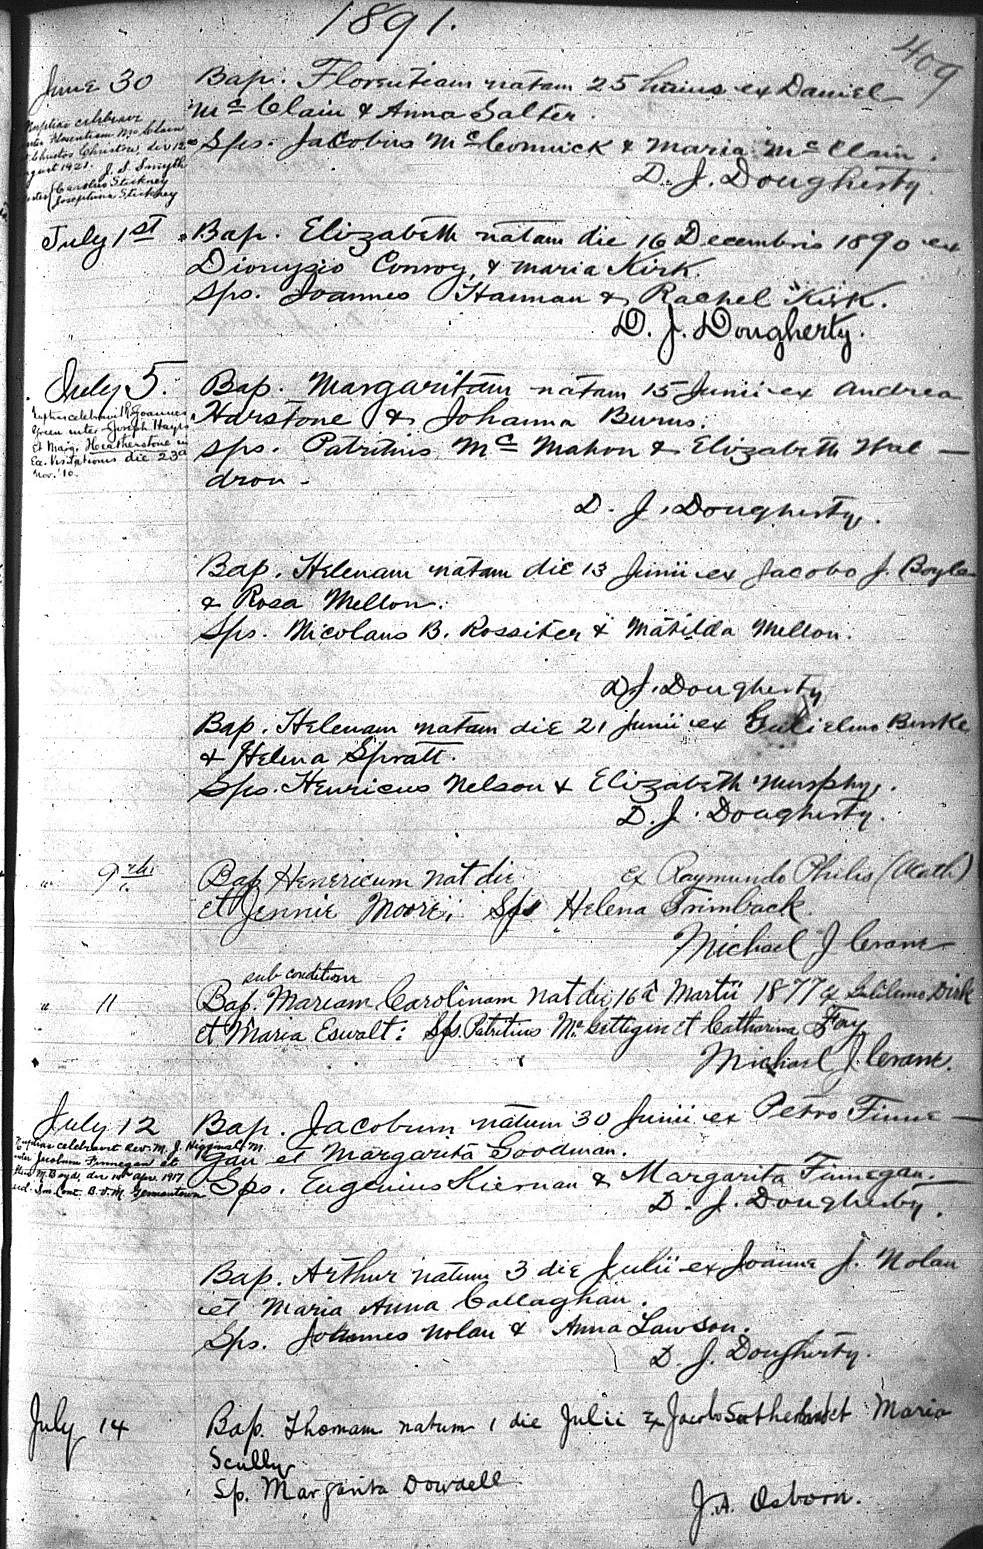 1891.
409
June 30
Bap. Florentiam natam 25 hujus ex Daniel
McClain & Anna Salter.
Nuptias celebrav
inter Florentiam McClain
et Christo Christow, die 12a
August 1921. J. S. Smyth
Carolus Stickney
Josephina Stickney
Sps. Jacobus McCormick & Maria McClain.
D. J. Dougherty
July 1st
Bap. Elizabeth natam die 16 Decembris 1890 ex
Dionysio Conroy, & Maria Kirk.
Sps. Joannes Hannan & Rachel Kirk.
D. J. Dougherty.
July 5.
Bap. Margaritam natam 15 Junii ex Andrea
Harstone & Johanna Burns.
Nuptias celebravit Joannes
Green inter Joseph Hayes
et Marg. Heatherstone in
Ec. Visitationis die 23a
Nov. '10.
Sps. Patritius McMahon & Elizabeth Wal—
dron.
D. J. Dougherty.
Bap. Helenam natam die 13 Junii ex Jacobo J. Boyle
& Rosa Mellon.
Sps. Nicolaus B. Rossiter & Matilda Mellon.
D J. Dougherty
Bap. Helenam natam die 21 Junii ex Gulielmo Burke
& Helena Spratt.
Sps. Henricus Nelson & Elizabeth Murphy.
D. J. Dougherty.
" 9th
Bap Henericum nat die ex Raymundo Philis (Acath)
et Jennie Moore; Sps Helena Trimback
Michael J Crane
sub conditione
" 11
Bap. Mariam Carolinam nat die 16a Martii 1877 ex Gulilemo Dirk
et Maria Eswalt: Sps. Patritius McGettigin et Catharina Fay
Michael J. Crane.
July 12
Bap. Jacobum natum 30 Junii ex Petro Finne—
gan et Margarita Goodman.
Nuptias celebravit Rev. M. J. Higgins C.M.
inter Jacobum Finnegan et
M. Boyd, die 10th Apr. 1917
Im. Conc. B.V.M. Germantown
Sps. Eugenius Kiernan & Margarita Finnegan.
D. J. Dougherty.
Bap. Arthur natum 3 die Julii ex Joanne J. Nolan
et Maria Anna Callaghan.
Sps. Johannes Nolan & Anna Lawson.
D. J. Dougherty.
July 14
Bap. Thomam natum 1 die Julii Ex Jacobo Sutherland et Maria
Scully
Sp. Margarita Dowdell
J. A. Osborn.